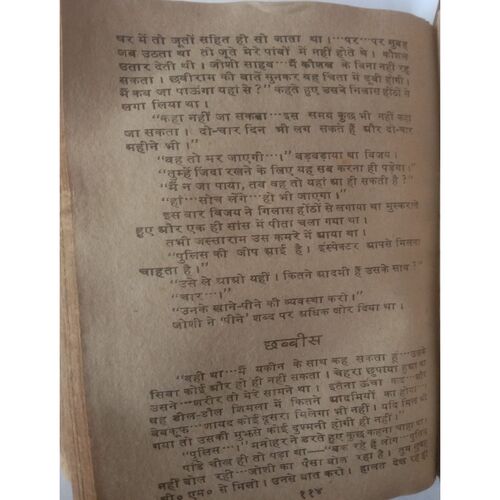 घर में तो जूतों सहित ही सो जाता था ।···पर···पर सुबह
जब उठता था तो जूते मेरे पांवों में नहीं होते थे । कौशल
उतार देती थी । जोशी साहब···मैं कौशल के बिना नहीं रह
सकता । छबीराम की बातें सुनकर वह चिंता में डूबी होगी ।
मैं कब जा पाऊंगा यहां से ?” कहते हुए उसने गिलास होंठों से
लगा लिया था ।
“कहा नहीं जा सकता···इस समय कुछ भी नहीं कहा
जा सकता । दो-चार दिन भी लग सकते हैं और दो-चार
महीने भी ।”
“वह तो मर जाएगी···।” बड़बड़ाया था विजय ।
“तुम्हें जिंदा रखने के लिए यह सब करना ही पड़ेगा ।”
“मैं न जा पाया, तब वह तो यहां आ ही सकती है ?”
“हां···सोच लेंगे···हो भी जाएगा ।”
इस बार विजय ने गिलास होंठों से लगाया था मुस्कराते
हुए और एक ही सांस में पीता चला गया था ।
तभी जस्साराम उस कमरे में आया था ।
“पुलिस की जीप आई है । इंस्पेक्टर आपसे मिलना
चाहता है ।”
“उसे ले आओ यहीं । कितने आदमी हैं उसके साथ ?”
“चार···।”
“उनके खाने-पीने की व्यवस्था करो ।”
जोशी ने ‘पीने’ शब्द पर अधिक जोर दिया था ।
छब्बीस
“वही था···मैं यकीन के साथ कह सकता हूं···उसके
सिवा कोई और हो ही नहीं सकता । चेहरा छुपाया हुआ था
उसने···शरीर तो मेरे सामने था । इतना ऊंचा कद···और
वह डील-डौल शिमला में कितने आदमियों का होगा
बेवकूफ···शायद कोई दूसरा मिलेगा भी नहीं । यदि मिल
गया तो उसकी मुझसे कोई दुश्मनी होगी ही नहीं ।”
“पुलिस···।” मनोहर ने डरते हुए कुछ कहना चाहा था ।
पांडे चीख ही तो पड़ा था—“बक रहे हैं लोग···पुलिस
नहीं बोल रही···जोशी का पैसा बोल रहा है । तुम
सी० एम० से मिलो । उनसे बात करो । हालत देख रहे हो
११४